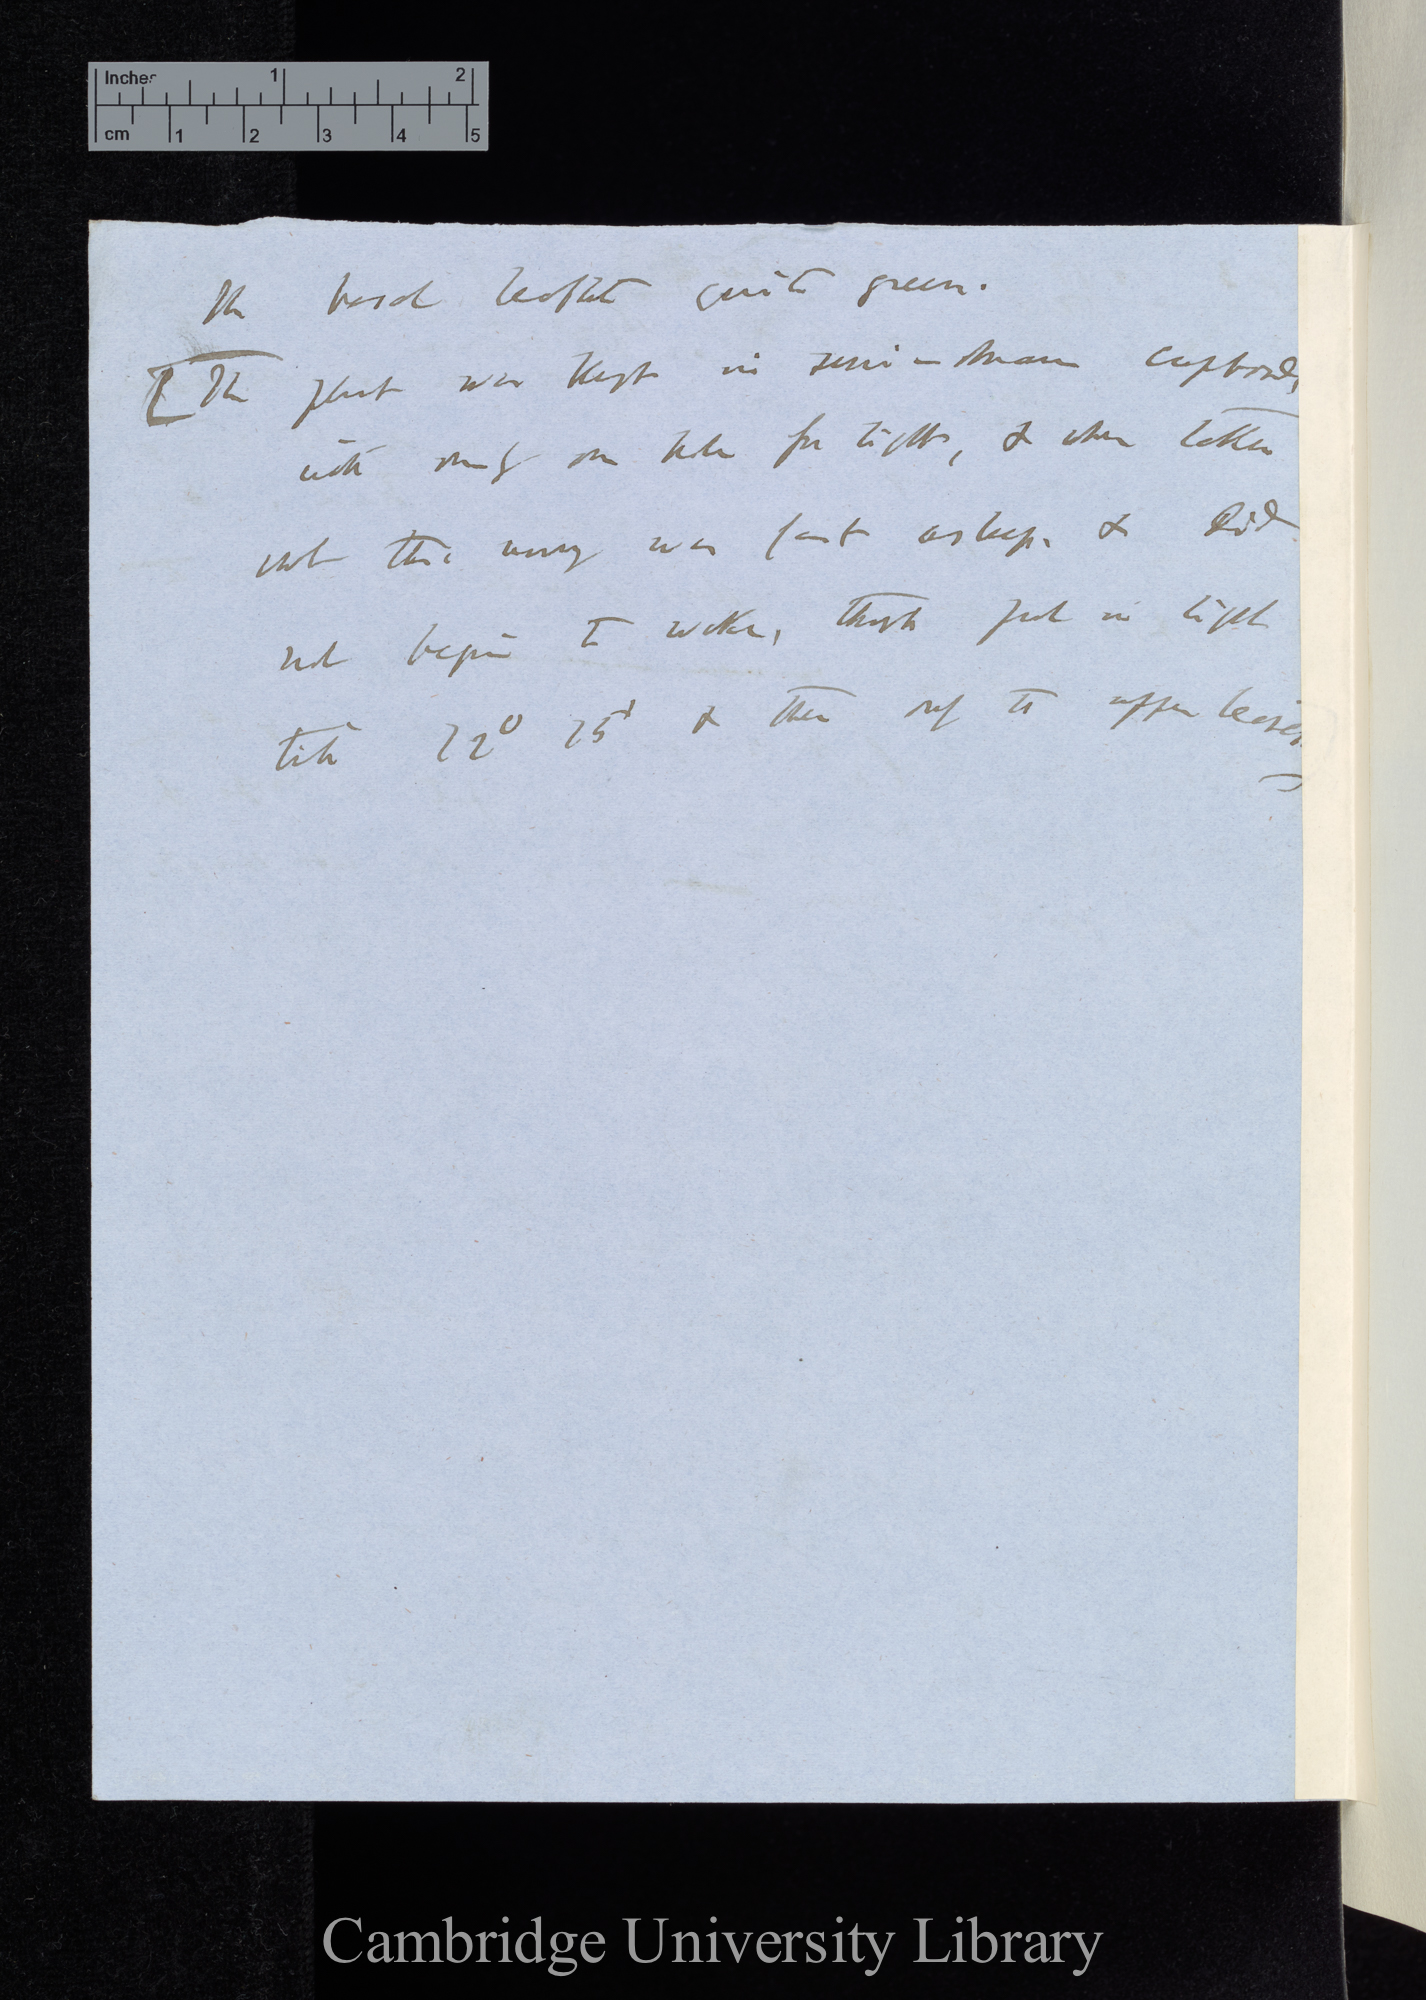 Inches 1 2
cm 1 2 3 4 5
The basal leaflets quite green.
[The plant was kept in semi-steam cupboard,
with only one hole for light, & when taken
out this mng was fast asleep, & did
not begin to wake, though put in light
till 12° 15' & then only the upper leaves
]
Cambridge University Library